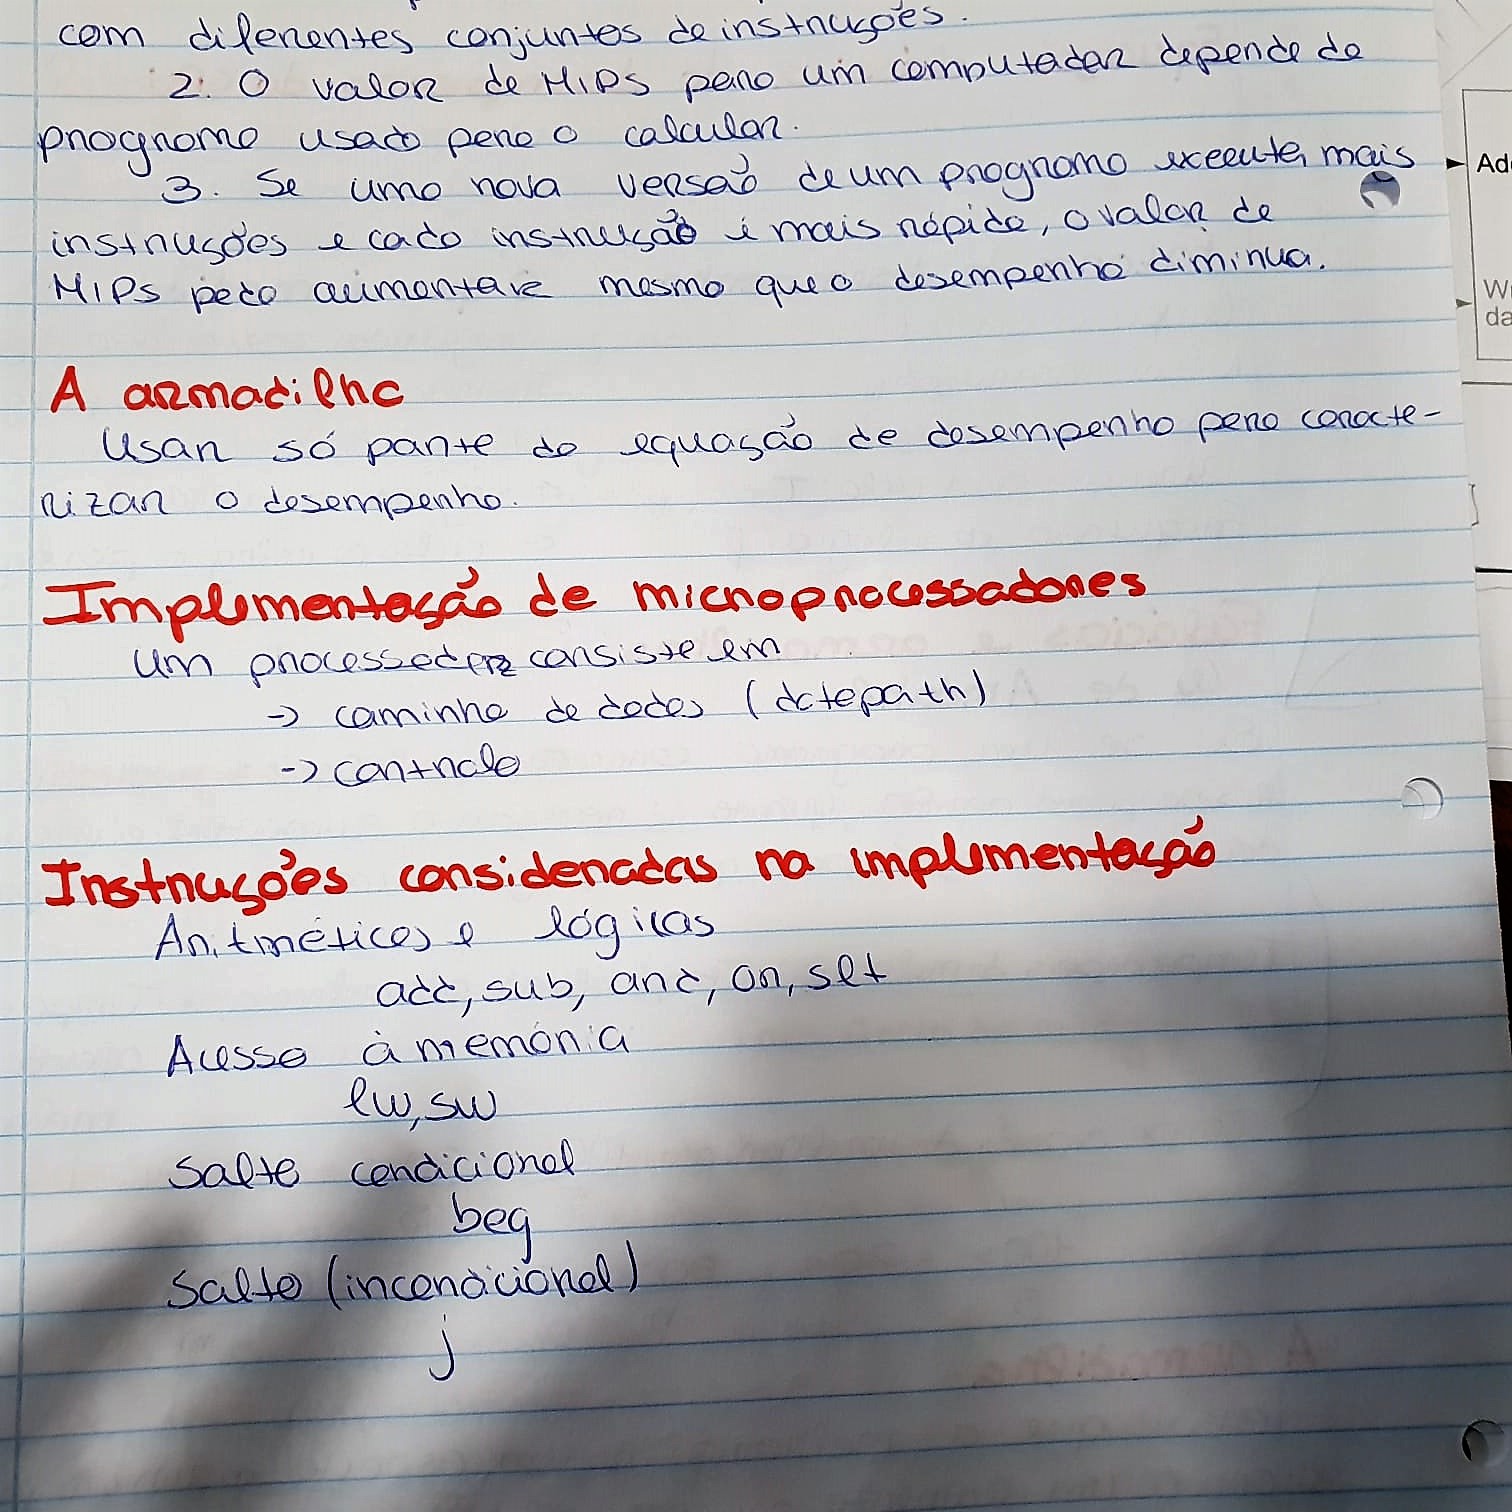 com diferentes conjuntos de instruções.
2. O valor de MIPS para um computador depende do
programa usado para o calcular.
3. Se uma nova versão de um programa executa mais
instruções e cada instrução é mais rápida, o valor de
MIPS pode aumentar e mesmo que o desempenho diminua.
A armadilha
Usar só parte da equação de desempenho para caracte-
rizar o desempenho.
Implementação de microprocessadores
Um processador consiste em
-> caminho de dados (datapath)
-> controlo
Instruções consideradas na implementação
Aritméticas e lógicas
add, sub, and, or, slt
Acesso à memória
lw, sw
Salto condicional
beq
Salto (incondicional)
j
Ad
W
da